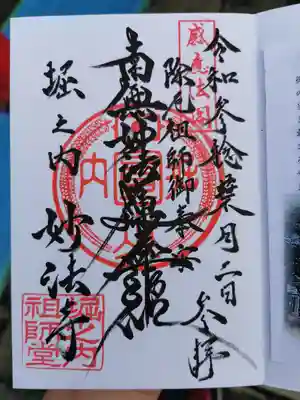 令和参年葉月二日 参拝
除厄祖師御奉安
南無妙法蓮華経
堀之内 妙法寺
感應法閣
堀之内
祖師堂